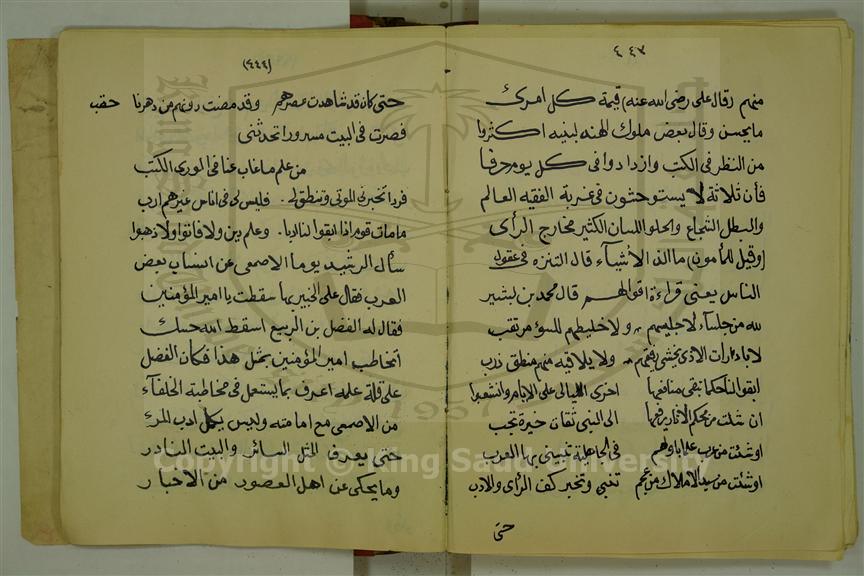 ٤٤٣
منهم (وقال على رضى الله عنه) قيمة كل امرئ
ما يحسن وقال بعض ملوك الهند لبنيه اكثروا
من النظر فى الكتب وازدادوا فى كل يوم حرفا
فأن ثلاثة لا يستوحشون فى غربة الفقيه العالم
والبطل الشجاع والحلو اللسان الكثير مخارج الرأى
(وقيل للمأمون) ما الذ الأشياء قال التنزه فى عقول
الناس يعنى قراءة اقوالهم قال محمد بن بشير
لله من جلساء لا جليسهم ولا خليطهم للسوء مرتقب
لا بادرات الاذى يخشى رفيقهم ولا يلاقيه منهم منطق ذرب
ابقوا لنا حكما تبقى منافعها اخرى الليالى على الايام وانشعبوا
ان شئت من محكم الاثار يرفعها الى النبى ثقات خيرة نجب
او شئت من عرب علما باولهم فى الجاهلية تنبينى بها العرب
او شئت من سير الاملاك من عجم تنبى وتخبر كف الرأى والادب
حتى
(٤٤٤)
حتى كان قد شاهدت عصرهم وقد مضت دونهم من دهرنا حقب
فصرت فى البيت مسرورا تحدثنى
من علم ما غاب عنا فى الورى الكتب
فردا تخبرنى الموتى وتنطق لى فليس لى فى اناس غيرهم ارب
ما مات قوم اذا ابقوا لنا ادبا وعلم دين ولا فاتوا ولا ذهبوا
سأل الرشيد يوما الاصمعى عن انساب بعض
العرب فقال على الخبير بها سقطت يا امير المؤمنين
فقال له الفضل بن الربيع اسقط الله حسك
اتخاطب امير المؤمنين بمثل هذا فكان الفضل
على قلة علمه اعرف بما يستعمل فى مخاطبة الخلفاء
من الاصمعى مع امامته وليس يكمل ادب المرء
حتى يعرف المثل السائر والبيت النادر
وما يحكى عن اهل العصور من الاخبار
Copyright © King Saud University
1957